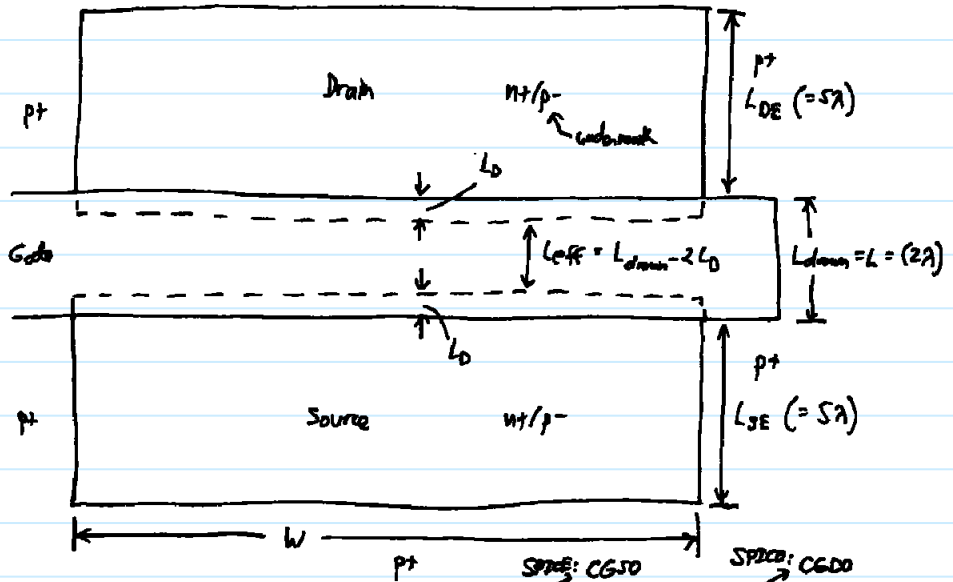 p+
Drain n+/p-
L_DE (=5λ)
p+
underneath
L_D
Gate
L_eff = L_drawn - 2L_D
L_drawn = L = (2λ)
L_D
p+
p+
Source n+/p-
L_SE (=5λ)
W
p+
SPICE: CGSO
SPICE: CGDO